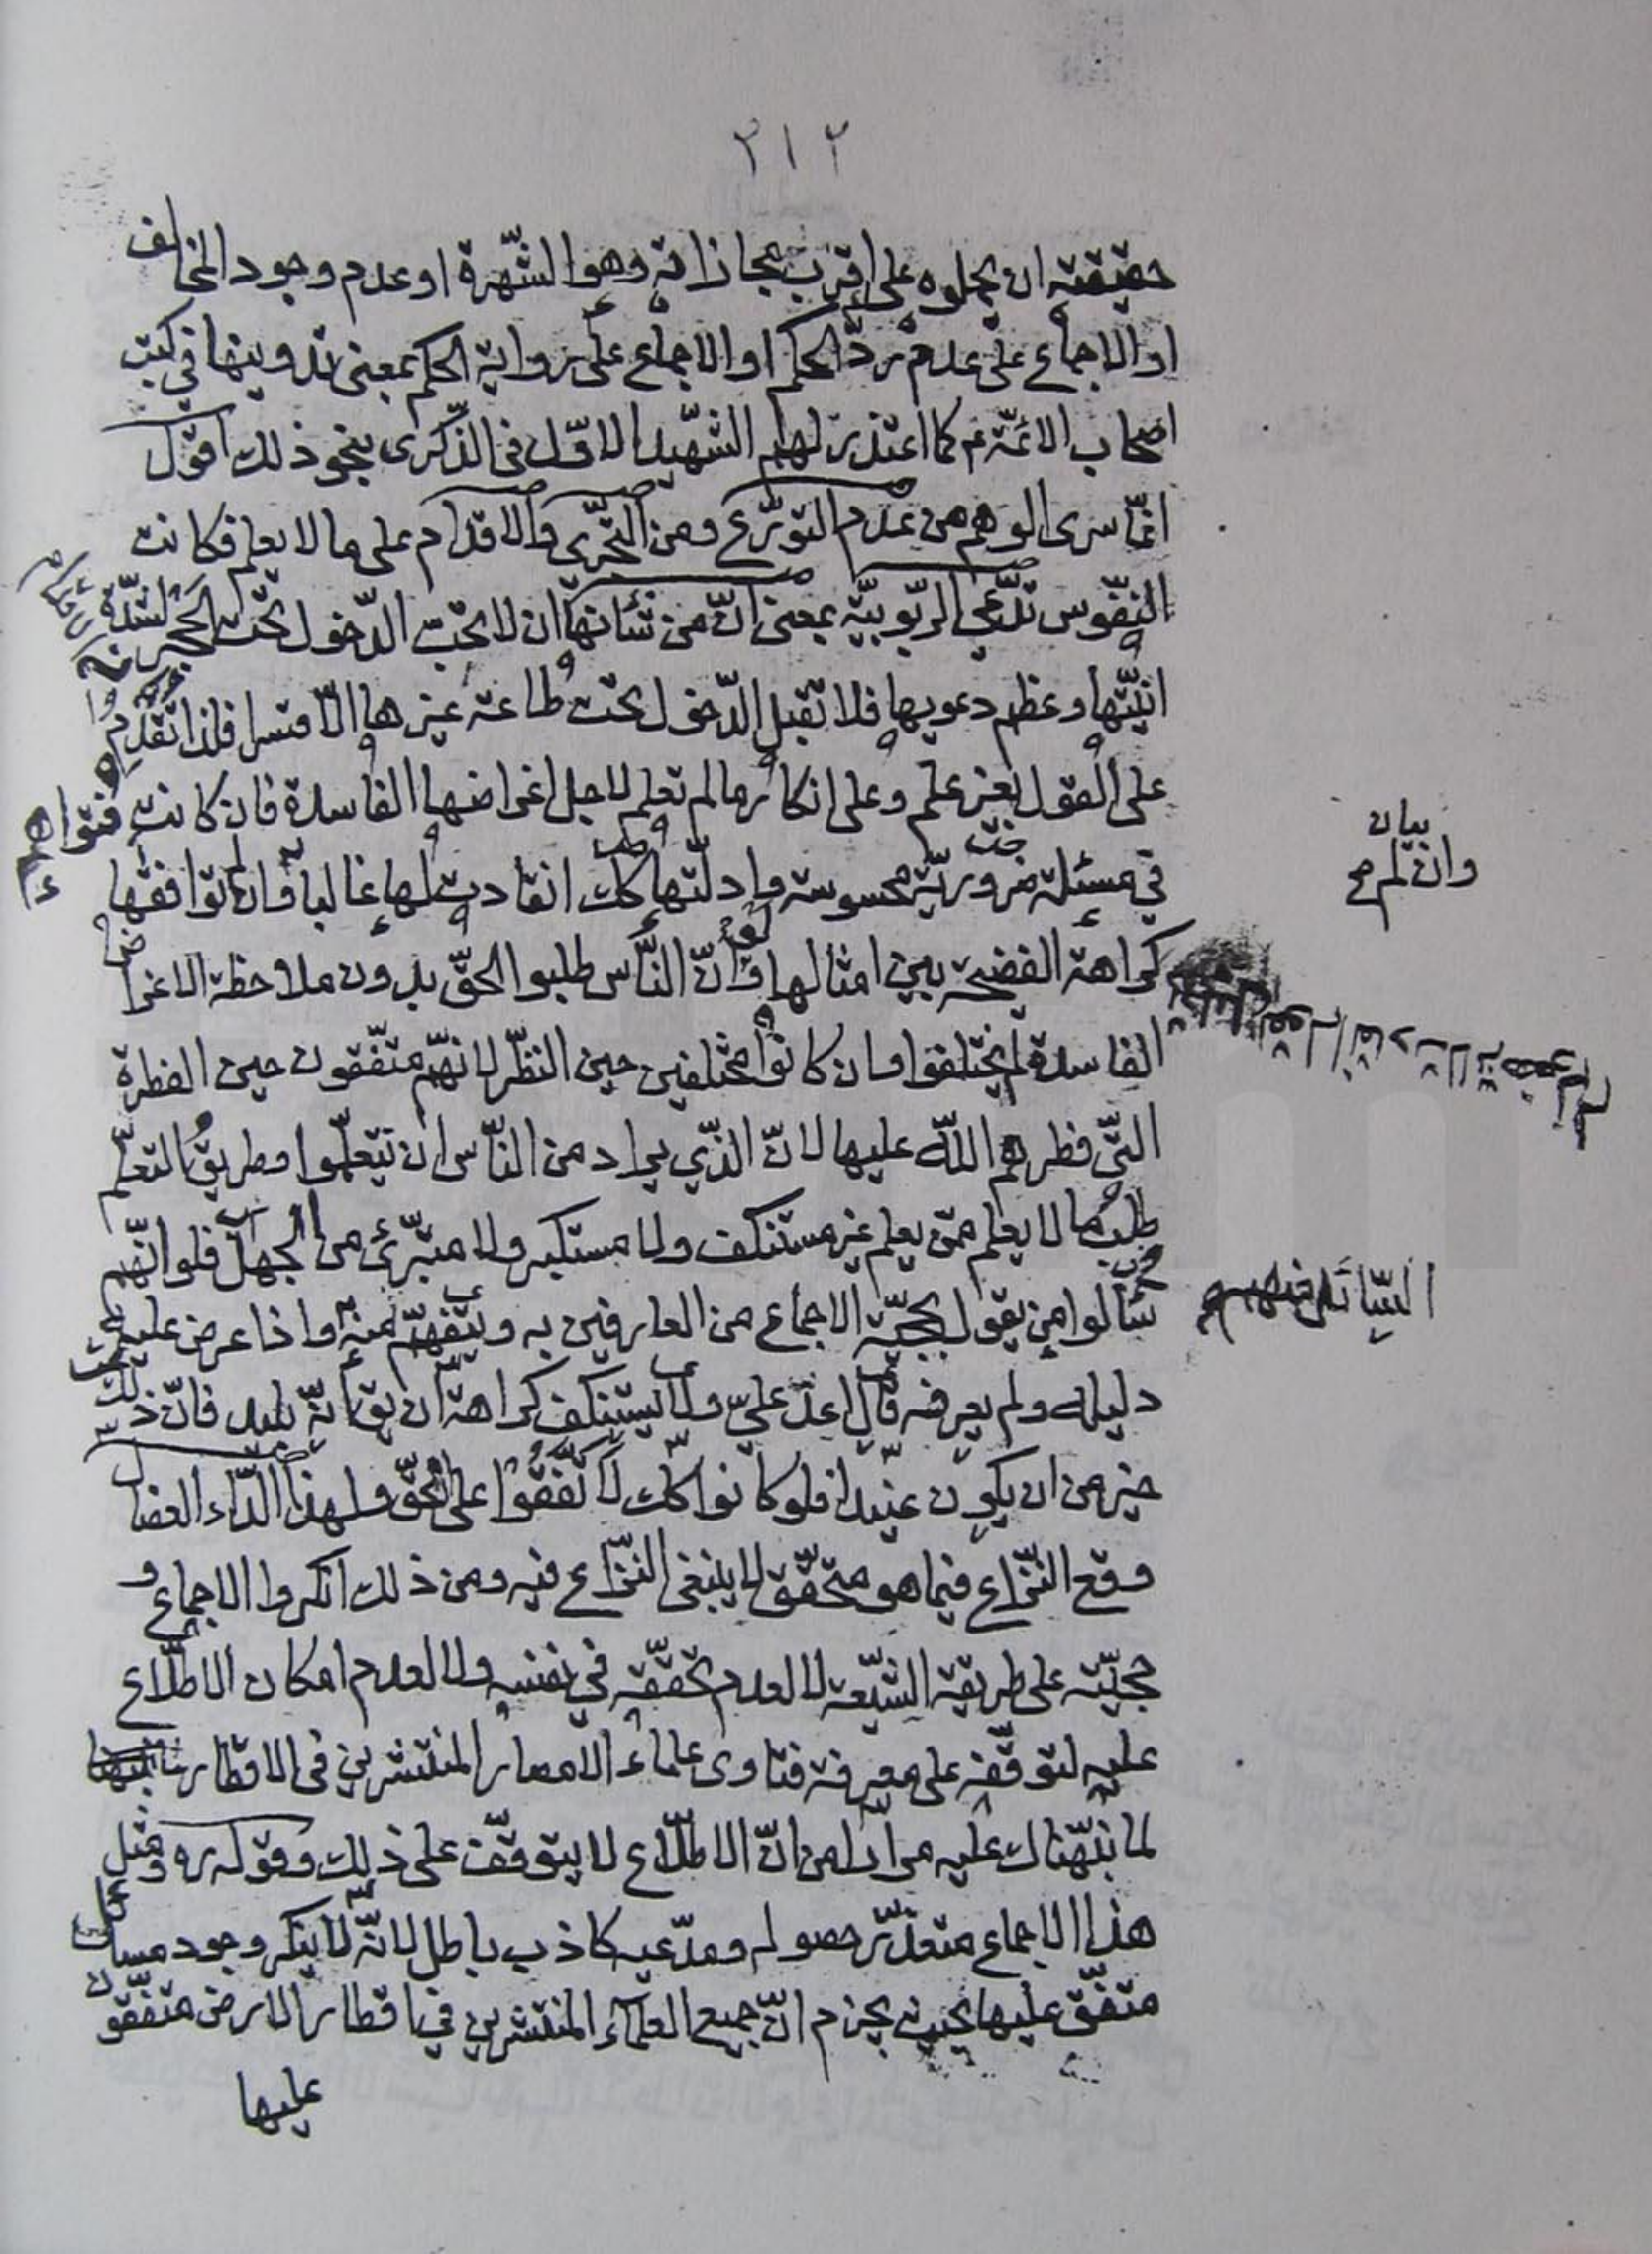 ٢١٢
حقيقته ان يحملوه على اقرب مجازاته وهو الشّهرة او عدم وجود المخالف
او الاجماع على عدم ردّ الحكم او الاجماع على رواية الحكم بمعنى تدوينها في كتب
اصحاب الائمّة عم كما اعتذر لهم الشهيد الاوّل فى الذّكرى بنحو ذلك اقول
انّما سرى الوهم من عدم التورّع ومن التجرّى والاقدام على ما لا يعلم فكانت
النفوس تدّعي الرّبوبيّة بمعنى انّ من شأنها ان لا تحبّ الدّخول تحت الحجر لشدّة
انيّتها وعظم دعويها فلا تقبل الدّخول تحت طاعة غيرها الّا قسرا فلذا تقدم
على القول بغير علم وعلى انكار ما لم تعلم لاجل اغراضها الفاسدة فان كانت
في مسئلة ضروريّة محسوسة وادلّتها كك انقادت لها غالبا وان لم توافقها
كراهة الفضيحة بين امثالها ولو انّ النّاس طلبوا الحقّ بدون ملاحظة الاغراض
الفاسدة لم يختلفوا وان كانوا مختلفين حين النظر لانّهم متّفقون حين الفطرة
التّي فطرهم اللّه عليها لانّ الذّي يراد من النّاس ان يتعلّموا وطريق التعلّم
طلب ما لا يعلم ممّن يعلم غير مستنكف ولا مستكبر ولا متبرّئ من الجهل فلو انّهم
سألوا من يقول بحجيّة الاجماع من العارفين به ويتفهّم منه واذا عرض عليه
دليله ولم يعرفه قال اعد عليّ ولا يستنكف كراهة ان يق انّه بليد فانّ ذلك
خير من ان يكون عنيدا فلو كانوا كك لاتّفقوا على الحقّ ولهذا الدّاء العضال
وقع النّزاع فيما هو متحقّق لا ينبغى النّزاع فيه ومن ذلك انكروا الاجماع و
حجيّته على طريقة الشّيعة لا لعدم تحقّقه في نفسه ولا لعدم امكان الاطّلاع
عليه لتوقّفه على معرفة فتاوى علماء الامصار المنتشرين فى الاقطار
لما نبّهناك عليه مرارا من انّ الاطّلاع لا يتوقّف على ذلك وقوله ره ومثل
هذا الاجماع متعذّر حصوله ومدّعيه كاذب باطل لانّه لا ينكر وجود مسائل
متفّق عليها بحيث يجزم انّ جميع العلماء المنتشرين في اقطار الارض متفّقون
عليها
بيان
وان لم صح